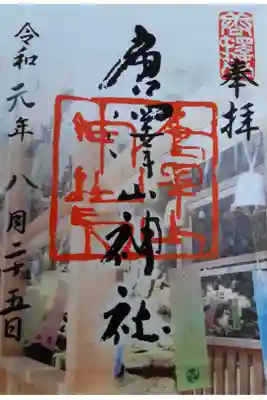 奉拝
唐澤山神社
令和元年八月二十五日